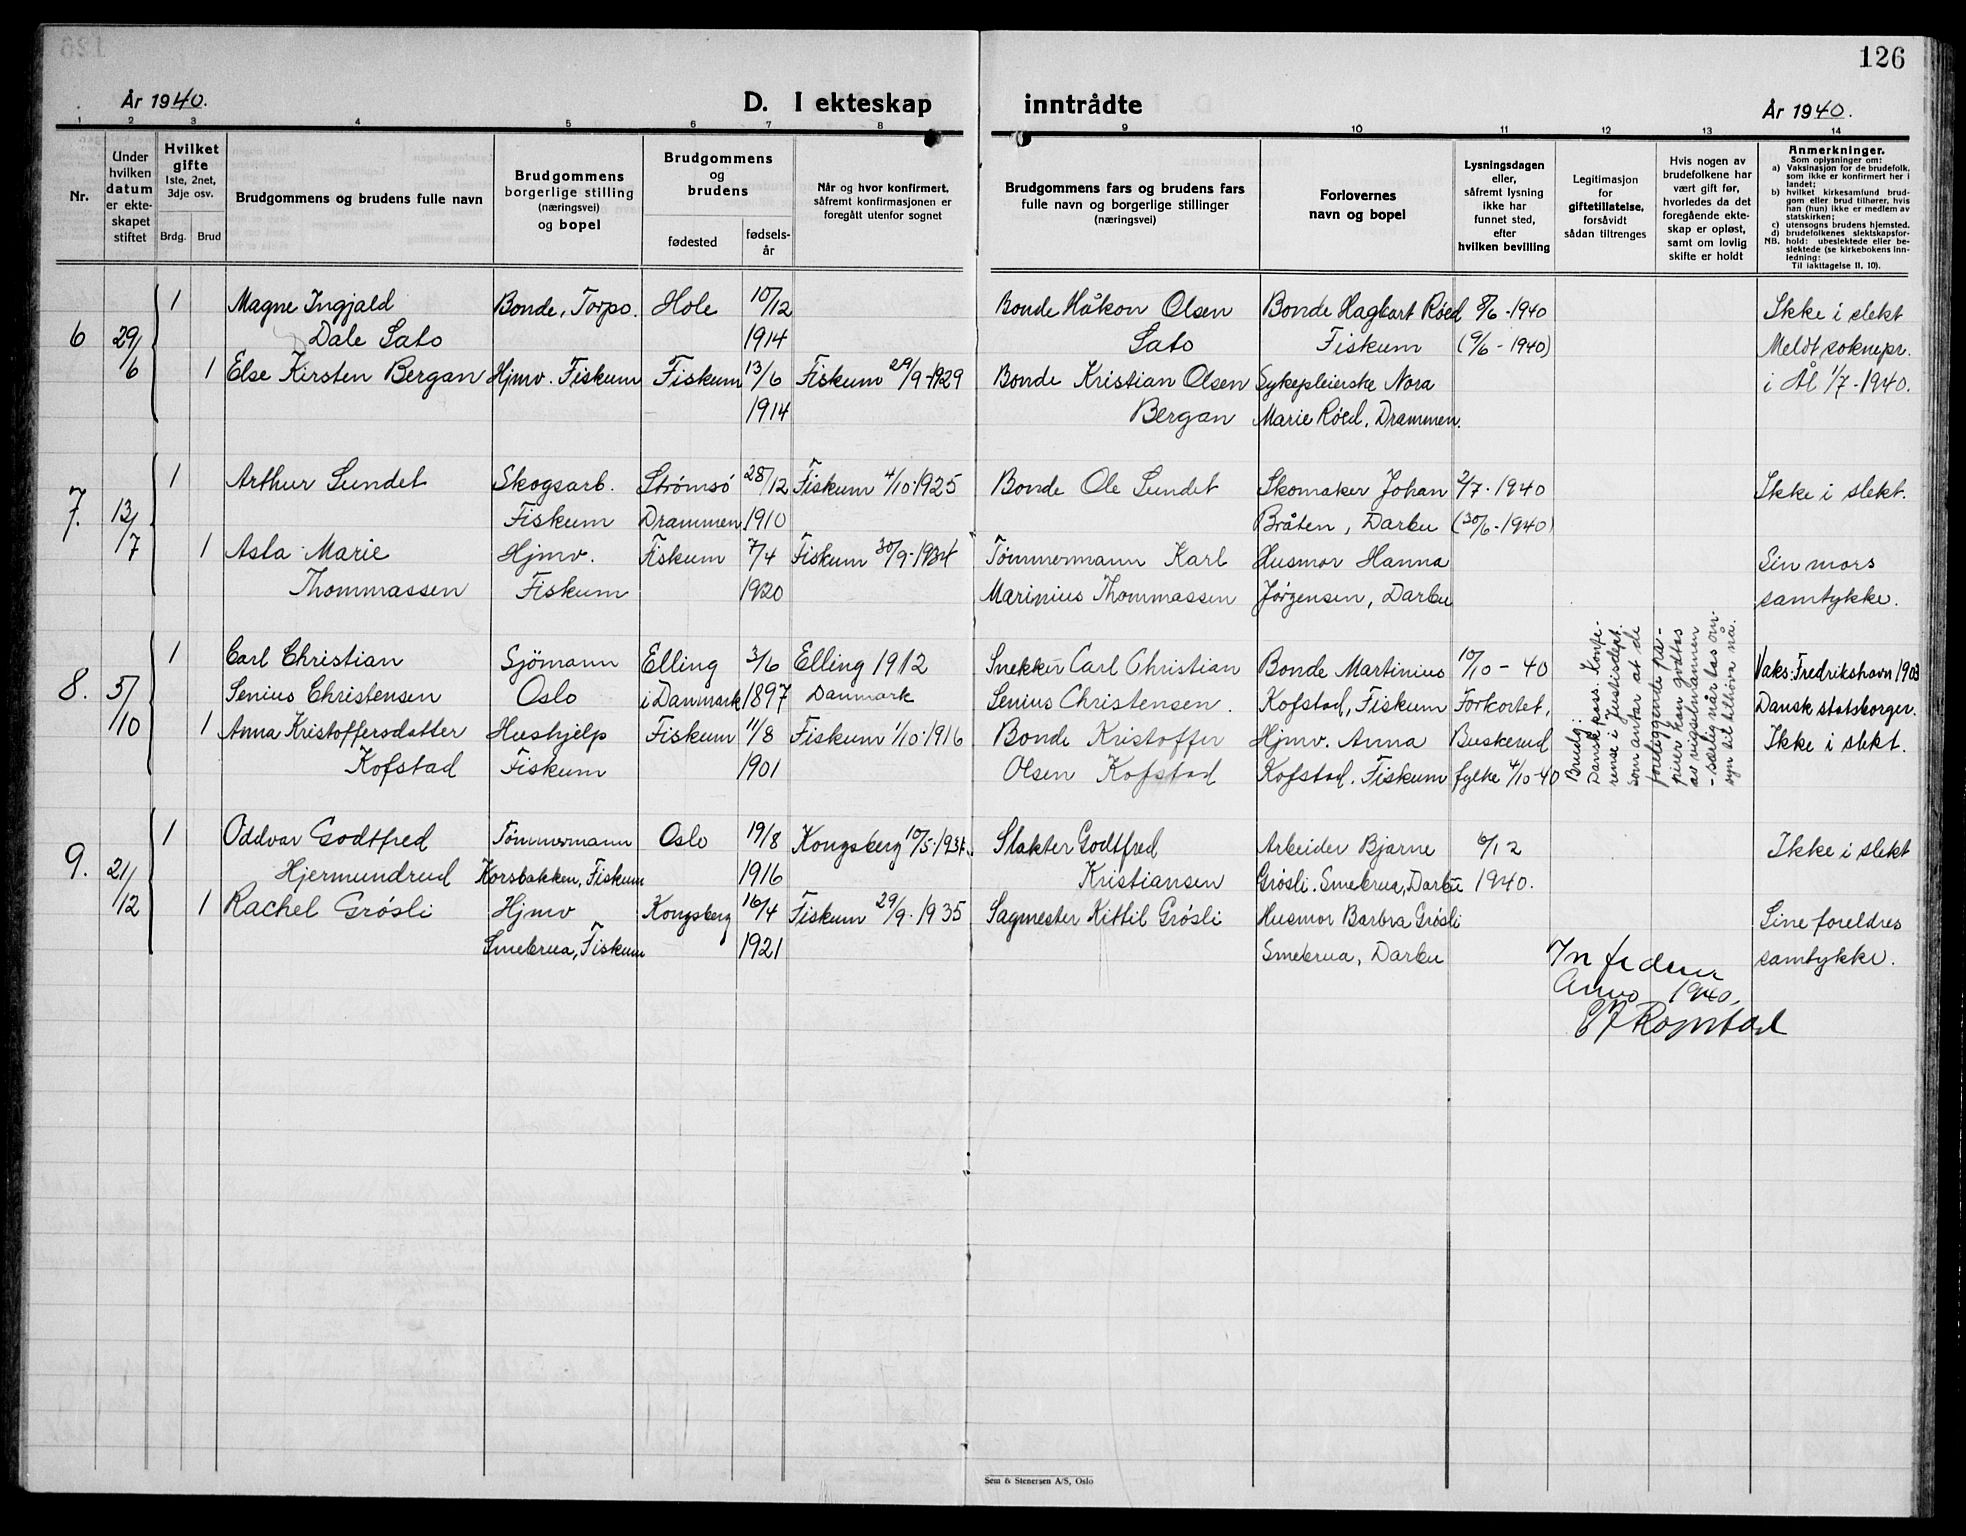 126
År 1940.
D. I ekteskap inntrådte
År 1940.
1 2 3 4 5 6 7 8 9 10 11 12 13 14
Nr.
Under
hvilken
datum
er ekte-
skapet
stiftet
Hvilket
gifte
1ste, 2net,
3dje osv.
Brdg. Brud
Brudgommens og brudens fulle navn
Brudgommens
borgerlige stilling
(næringsvei)
og bopel
Brudgommens
og
brudens
fødested
fødsels-
år
Når og hvor konfirmert,
såfremt konfirmasjonen er
foregått utenfor sognet
Brudgommens fars og brudens fars
fulle navn og borgerlige stillinger
(næringsvei)
Forlovernes
navn og bopel
Lysningsdagen
eller,
såfremt lysning
ikke har
funnet sted,
efter
hvilken bevilling
Legitimasjon
for
giftetillatelse,
forsåvidt
sådan tiltrenges
Hvis nogen av
brudefolkene har
vært gift før,
hvorledes da det
foregående ekte-
skap er opløst,
samt om lovlig
skifte er holdt
Anmerkninger.
Som oplysninger om:
a) Vaksinasjon for de brudefolk,
som ikke er konfirmert her i
landet;
b) hvilket kirkesamfund brud-
gom eller brud tilhører, hvis
han (hun) ikke er medlem av
statskirken;
c) utensogns brudens hjemsted.
d) brudefolkenes slektskapsfor-
NB. hold: ubeslektede eller be-
slektede (se kirkebokens inn-
ledning:
Til iakttagelse II, 10).
1 Magne Ingjald Bonde, Torpo. Hole 10/12 Bonde Håkon Olsen Bonde Hagbart Röed 8/6-1940 Ikke i slekt
6 29/6 Dale Sato 1914 Sato Fiskum (9/6-1940) Meldt soknepr.
1 Else Kirsten Bergan Hjmv. Fiskum Fiskum 13/6 Fiskum 29/9-1929 Bonde Kristian Olsen Sykepleierske Nora i Ål 1/7-1940.
1914 Bergan Marie Röed, Drammen.
1 Arthur Sundet Skogsarb. Strømsö 28/12 Fiskum 4/10-1925 Bonde Ole Sundet Skomaker Johan 2/7-1940 Ikke i slekt.
7. 13/7 Fiskum Drammen 1910 Bråten, Darbu (30/6-1940)
1 Asta Marie Hjmv. Fiskum 7/4 Fiskum 30/9-1934 Tømmermann Karl Husmor Hanna Sin mors
Thommassen Fiskum 1920 Marinius Thommassen Jörgensen, Darbu samtykke.
1 Carl Christian Sjömann Elling 3/6 Elling 1912 Snekker Carl Christian Bonde Martinius 10/10-40 Vaks: Fredrikshavn 1903
8. 5/10 Senius Christensen Oslo i Danmark 1897 Danmark Senius Christensen. Kofstad, Fiskum Forkortet, Dansk statsborger.
1 Anna Kristoffersdatter Hushjelp Fiskum 11/8 Fiskum 1/10-1916 Bonde Kristoffer Hjmv. Anna Buskerud Ikke i slekt.
Kofstad Fiskum 1901 Olsen Kofstad Kofstad. Fiskum fylke 4/10-40
Brudg.:
Dansk pass. Konfe-
rense i Justisdept.
som antar at de
foreliggende pa-
pirer kan godtas
av vigselmannen
- særlig når tas om-
syn til tilhöva nå.
1 Oddvar Godtfred Tømmermann Oslo 19/8 Kongsberg 10/5-1931. Slakter Godtfred Arbeider Bjarne 6/12 Ikke i slekt
9. 21/12 Hjermundrud Korsbakken, Fiskum 1916 Kristiansen Grösli. Smebrua, Darbu 1940.
1 Rachel Grösli Hjmv Kongsberg 16/4 Fiskum 29/9-1935 Sagmester Kittil Grösli Husmor Barbra Grösli Sine foreldres
Smebrua, Fiskum 1921 Smebrua, Darbu samtykke.
In fidem
Anno 1940.
Sem & Stenersen A/S, Oslo